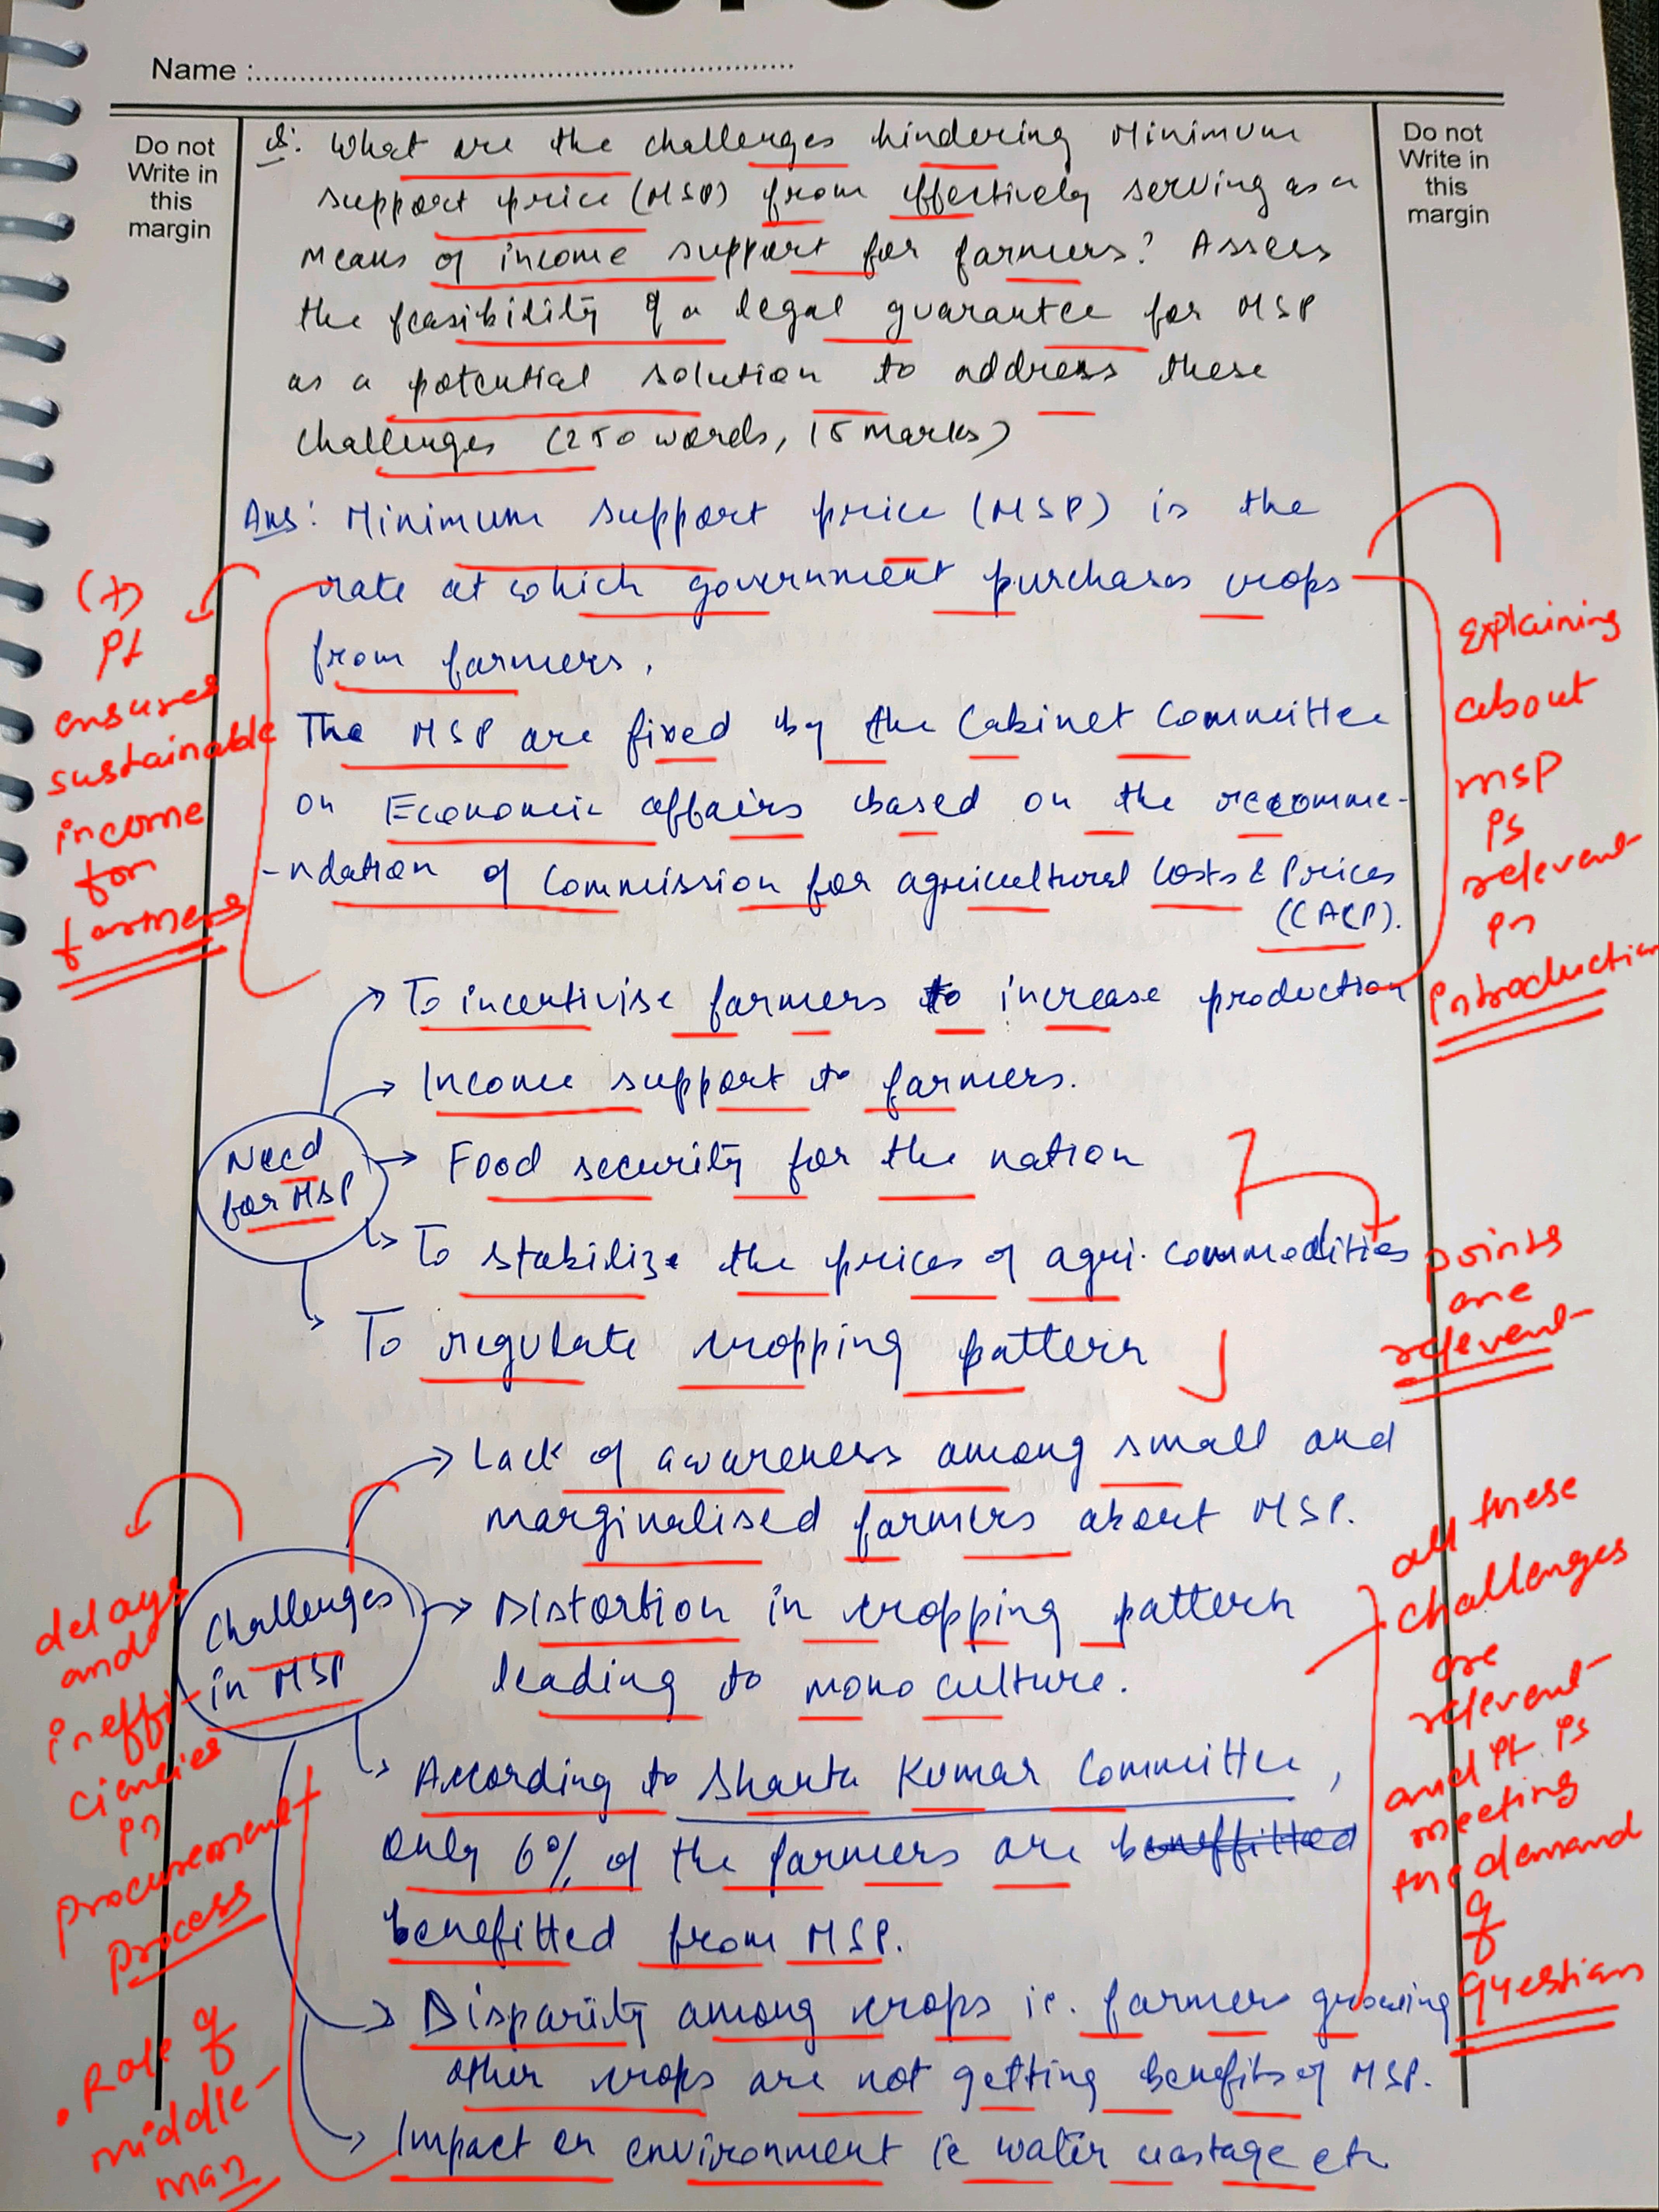 Name :
Do not
Write in
this
margin
Do not
Write in
this
margin
Q: What are the challenges hindering Minimum
support price (MSP) from effectively serving as a
means of income support for farmers? Assess
the feasibility of a legal guarantee for MSP
as a potential solution to address these
challenges (250 words, 15 marks)
Ans: Minimum support price (MSP) is the
rate at which government purchases crops
from farmers.
The MSP are fixed by the Cabinet Committee
on Economic affairs based on the recomme-
-ndation of Commission for agricultural Costs & Prices
(CACP).
(+)
It
ensures
sustainable
income
for
farmers
Explaining
about
MSP
is
relevent
in
introduction
Need
for MSP
→ To incentivise farmers to increase production
→ Income support to farmers.
→ Food security for the nation
↳ To stabilize the prices of agri. commodities
↳ To regulate cropping pattern
points
are
relevent
Challenges
in MSP
→ Lack of awareness among small and
marginalised farmers about MSP.
→ Distortion in cropping pattern
leading to mono culture.
↳ According to Shanta Kumar Committee,
only 6% of the farmers are benеffitted
benefitted from MSP.
→ Disparity among crops ie. farmers growing
other crops are not getting benefits of MSP.
→ Impact on environment ie water wastage etc
delays
and
ineffi-
ciencies
in
procurement
process
• Role of
middle-
man
all these
challenges
are
relevent
and it is
meeting
the demand
of
question